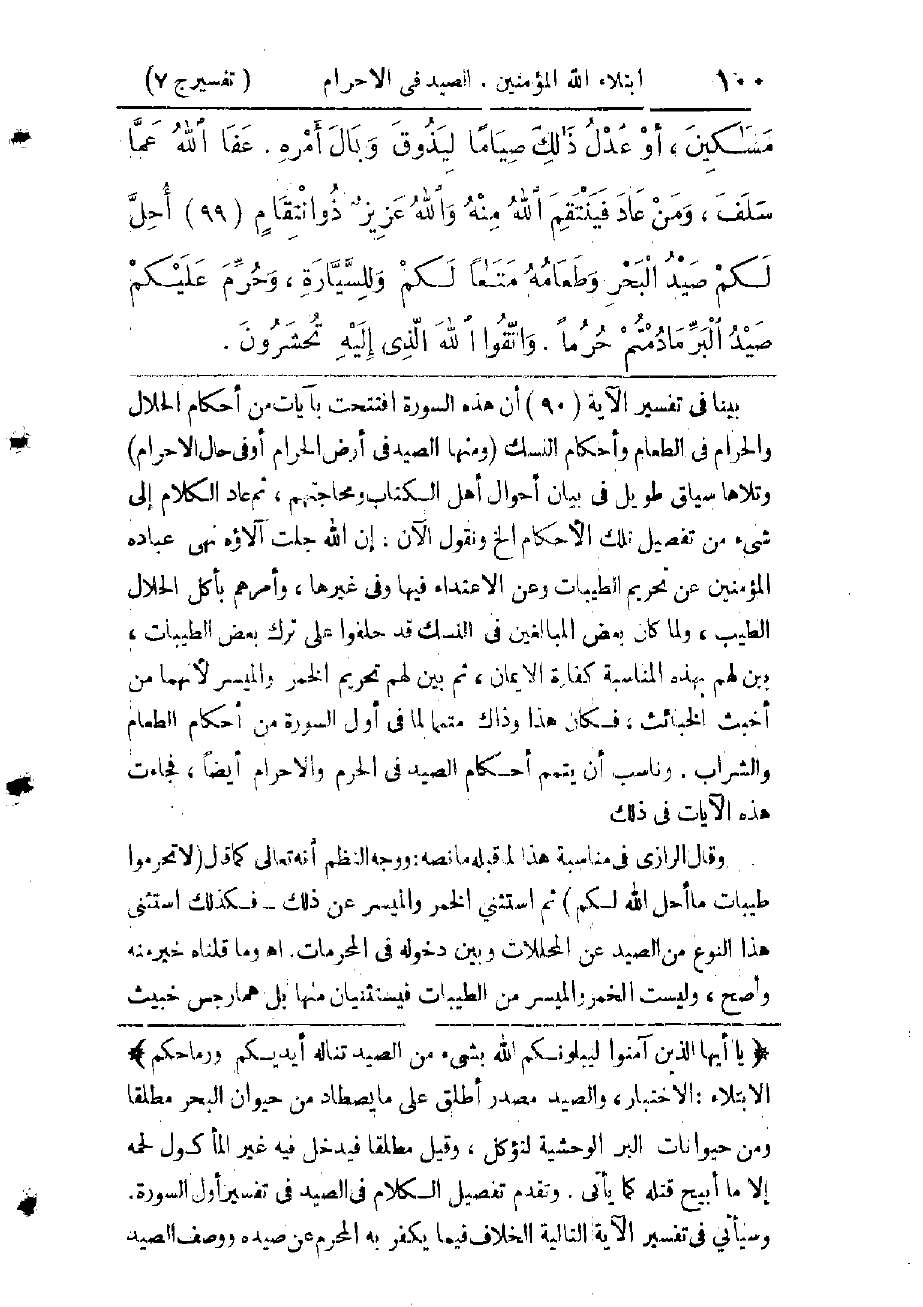 ١٠٠ ابتلاء الله المؤمنين . الصيد فى الاحرام ( تفسير ج ٧ )
مَسَـٰكِينَ ، أَوْ عَدْلُ ذَٰلِكَ صِيَامًا لِيَذُوقَ وَبَالَ أَمْرِهِ . عَفَا ٱللهُ عَمَّا
سَلَفَ ، وَمَنْ عَادَ فَيَنْتَقِمُ ٱللهُ مِنْهُ وَٱللهُ عَزِيزٌ ذُو انْتِقَامٍ ( ٩٩ ) أُحِلَّ
لَـكُمْ صَيْدُ الْبَحْرِ وَطَعَامُهُ مَتَـٰعًا لَـكُمْ وَلِلسَّيَّارَةِ ، وَحُرِّمَ عَلَيْـكُمْ
صَيْدُ ٱلْبَرِّ مَا دُمْتُمْ حُرُماً . وَاتَّقُوا ٱللهَ الَّذِى إِلَيْهِ تُحْشَرُونَ .
بينا فى تفسير الآية ( ٩٠ ) أن هذه السورة افتتحت بآيات من أحكام الحلال
والحرام فى الطعام وأحكام النسك (ومنها الصيد فى أرض الحرام أو فى حال الاحرام)
وتلاها سياق طويل فى بيان أحوال أهل الـكتاب ومحاجتهم ، ثم عاد الـكلام إلى
شىء من تفصيل تلك الأحكام الخ ونقول الآن : إن الله جلت آلاؤه نهى عباده
المؤمنين عن تحريم الطيبات وعن الاعتداء فيها وفى غيرها ، وأمرهم بأكل الحلال
الطيب ، ولما كان بعض المبالغين فى النسك قد حلفوا على ترك بعض الطيبات ،
بين لهم بهذه المناسبة كفارة الايمان ، ثم بين لهم تحريم الخمر والميسر لأنهما من
أخبث الخبائث ، فـكان هذا وذاك متمما لما فى أول السورة من أحكام الطعام
والشراب . وناسب أن يتمم أحـكام الصيد فى الحرم والاحرام أيضاً ، فجاءت
هذه الآيات فى ذلك
وقال الرازى فى مناسبة هذا لما قبله ما نصه: ووجه النظم أنه تعالى كما قال (لا تحرموا
طيبات ما أحل الله لـكم ) ثم استثني الخمر والميسر عن ذلك ــ فـكذلك استثنى
هذا النوع من الصيد عن المحللات وبين دخوله فى المحرمات. اه وما قلناه خير منه
وأصح ، وليست الخمر والميسر من الطيبات فيستثنيان منها بل هما رجس خبيث
﴿ يا أيها الذين آمنوا ليبلونـكم الله بشىء من الصيد تناله أيديـكم ورماحكم ﴾
الابتلاء : الاختبار ، والصيد مصدر أطلق على ما يصطاد من حيوان البحر مطلقا
ومن حيوانات البر الوحشية لتؤكل ، وقيل مطلقا فيدخل فيه غير المأكول لحمه
إلا ما أبيح قتله كما يأتى . وتقدم تفصيل الـكلام فى الصيد فى تفسير أول السورة.
وسيأتي فى تفسير الآية التالية الخلاف فيما يكفر به المحرم عن صيده ووصف الصيد